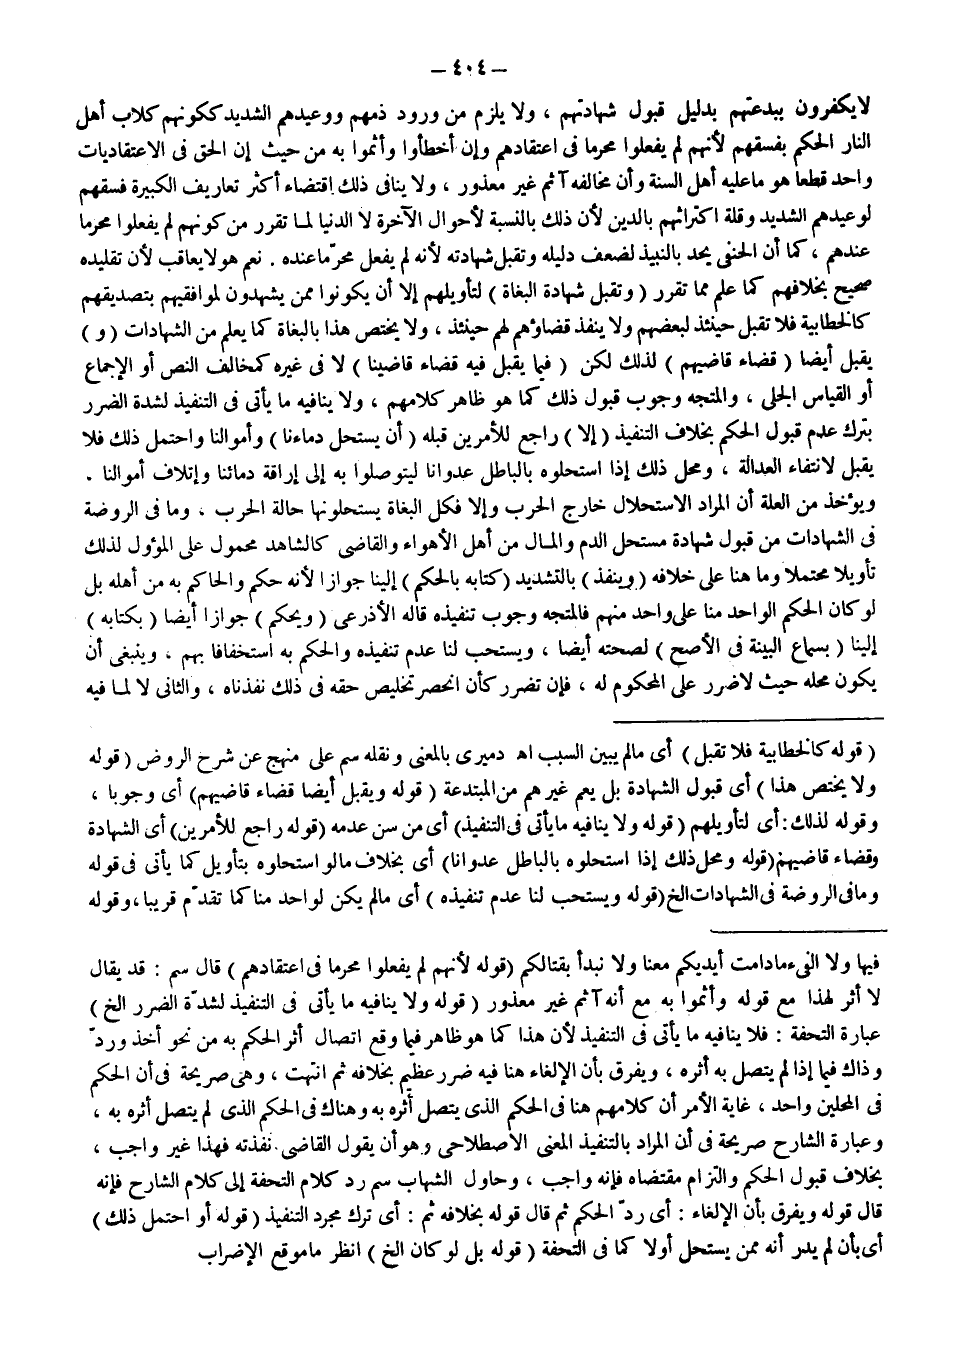 – ٤٠٤ –
لا يكفرون ببدعتهم بدليل قبول شهادتهم ، ولا يلزم من ورود ذمهم ووعيدهم الشديد ككونهم كلاب أهل
النار الحكم بفسقهم لأنهم لم يفعلوا محرما فى اعتقادهم وإن أخطأوا وأثموا به من حيث إن الحق فى الاعتقاديات
واحد قطعا هو ماعليه أهل السنة وأن مخالفه آثم غير معذور ، ولا ينافى ذلك اقتضاء أكثر تعاريف الكبيرة فسقهم
لوعيدهم الشديد وقلة اكتراثهم بالدين لأن ذلك بالنسبة لأحوال الآخرة لا الدنيا لما تقرر من كونهم لم يفعلوا محرما
عندهم ، كما أن الحنفى يحد بالنبيذ لضعف دليله وتقبل شهادته لأنه لم يفعل محرّما عنده . نعم هو لا يعاقب لأن تقليده
صحيح بخلافهم كما علم مما تقرر ( وتقبل شهادة البغاة ) لتأويلهم إلا أن يكونوا ممن يشهدون لموافقيهم بتصديقهم
كالخطابية فلا تقبل حينئذ لبعضهم ولا ينفذ قضاؤهم لهم حينئذ ، ولا يختص هذا بالبغاة كما يعلم من الشهادات ( و )
يقبل أيضا ( قضاء قاضيهم ) لذلك لكن ( فيما يقبل فيه قضاء قاضينا ) لا فى غيره كمخالف النص أو الإجماع
أو القياس الجلى ، والمتجه وجوب قبول ذلك كما هو ظاهر كلامهم ، ولا ينافيه ما يأتى فى التنفيذ لشدة الضرر
بترك عدم قبول الحكم بخلاف التنفيذ ( إلا ) راجع للأمرين قبله ( أن يستحل دماءنا ) وأموالنا واحتمل ذلك فلا
يقبل لانتفاء العدالة ، ومحل ذلك إذا استحلوه بالباطل عدوانا ليتوصلوا به إلى إراقة دمائنا وإتلاف أموالنا .
ويؤخذ من العلة أن المراد الاستحلال خارج الحرب وإلا فكل البغاة يستحلونها حالة الحرب ، وما فى الروضة
فى الشهادات من قبول شهادة مستحل الدم والمال من أهل الأهواء والقاضى كالشاهد محمول على المؤول لذلك
تأويلا محتملا وما هنا على خلافه ( وينفذ ) بالتشديد ( كتابه بالحكم ) إلينا جوازا لأنه حكم والحاكم به من أهله بل
لو كان الحكم الواحد منا على واحد منهم فالمتجه وجوب تنفيذه قاله الأذرعى ( ويحكم ) جوازا أيضا ( بكتابه )
إلينا ( بسماع البينة فى الأصح ) لصحته أيضا ، ويستحب لنا عدم تنفيذه والحكم به استخفافا بهم ، وينبغى أن
يكون محله حيث لا ضرر على المحكوم له ، فإن تضرر كأن انحصر تخليص حقه فى ذلك نفذناه ، والثانى لا لما فيه
( قوله كالخطابية فلا تقبل ) أى مالم يبين السبب اهـ دميرى بالمعنى ونقله سم على منهج عن شرح الروض ( قوله
ولا يختص هذا ) أى قبول الشهادة بل يعم غيرهم من المبتدعة ( قوله ويقبل أيضا قضاء قاضيهم) أى وجوبا ،
وقوله لذلك : أى لتأويلهم ( قوله ولا ينافيه ما يأتى فى التنفيذ) أى من سن عدمه (قوله راجع للأمرين) أى الشهادة
وقضاء قاضيهم (قوله ومحل ذلك إذا استحلوه بالباطل عدوانا) أى بخلاف مالو استحلوه بتأويل كما يأتى فى قوله
وما فى الروضة فى الشهادات الخ (قوله ويستحب لنا عدم تنفيذه ) أى مالم يكن لواحد منا كما تقدّم قريبا ، وقوله
فيها ولا الفىء مادامت أيديكم معنا ولا نبدأ بقتالكم (قوله لأنهم لم يفعلوا محرما فى اعتقادهم ) قال سم : قد يقال
لا أثر لهذا مع قوله وأثموا به مع أنه آثم غير معذور ( قوله ولا ينافيه ما يأتى فى التنفيذ لشدّة الضرر الخ )
عبارة التحفة : فلا ينافيه ما يأتى فى التنفيذ لأن هذا كما هو ظاهر فيما وقع اتصال أثر الحكم به من نحو أخذ وردّ
وذاك فيما إذا لم يتصل به أثره ، ويفرق بأن الإلغاء هنا فيه ضرر عظيم بخلافه ثم انتهت ، وهى صريحة فى أن الحكم
فى المحلين واحد ، غاية الأمر أن كلامهم هنا فى الحكم الذى يتصل أثره به وهناك فى الحكم الذى لم يتصل أثره به ،
وعبارة الشارح صريحة فى أن المراد بالتنفيذ المعنى الاصطلاحى وهو أن يقول القاضى نفذته فهذا غير واجب ،
بخلاف قبول الحكم والتزام مقتضاه فإنه واجب ، وحاول الشهاب سم رد كلام التحفة إلى كلام الشارح فإنه
قال قوله ويفرق بأن الإلغاء : أى ردّ الحكم ثم قال قوله بخلافه ثم : أى ترك مجرد التنفيذ ( قوله أو احتمل ذلك )
أى بأن لم يدر أنه ممن يستحل أولا كما فى التحفة ( قوله بل لو كان الخ ) انظر ماموقع الإضراب